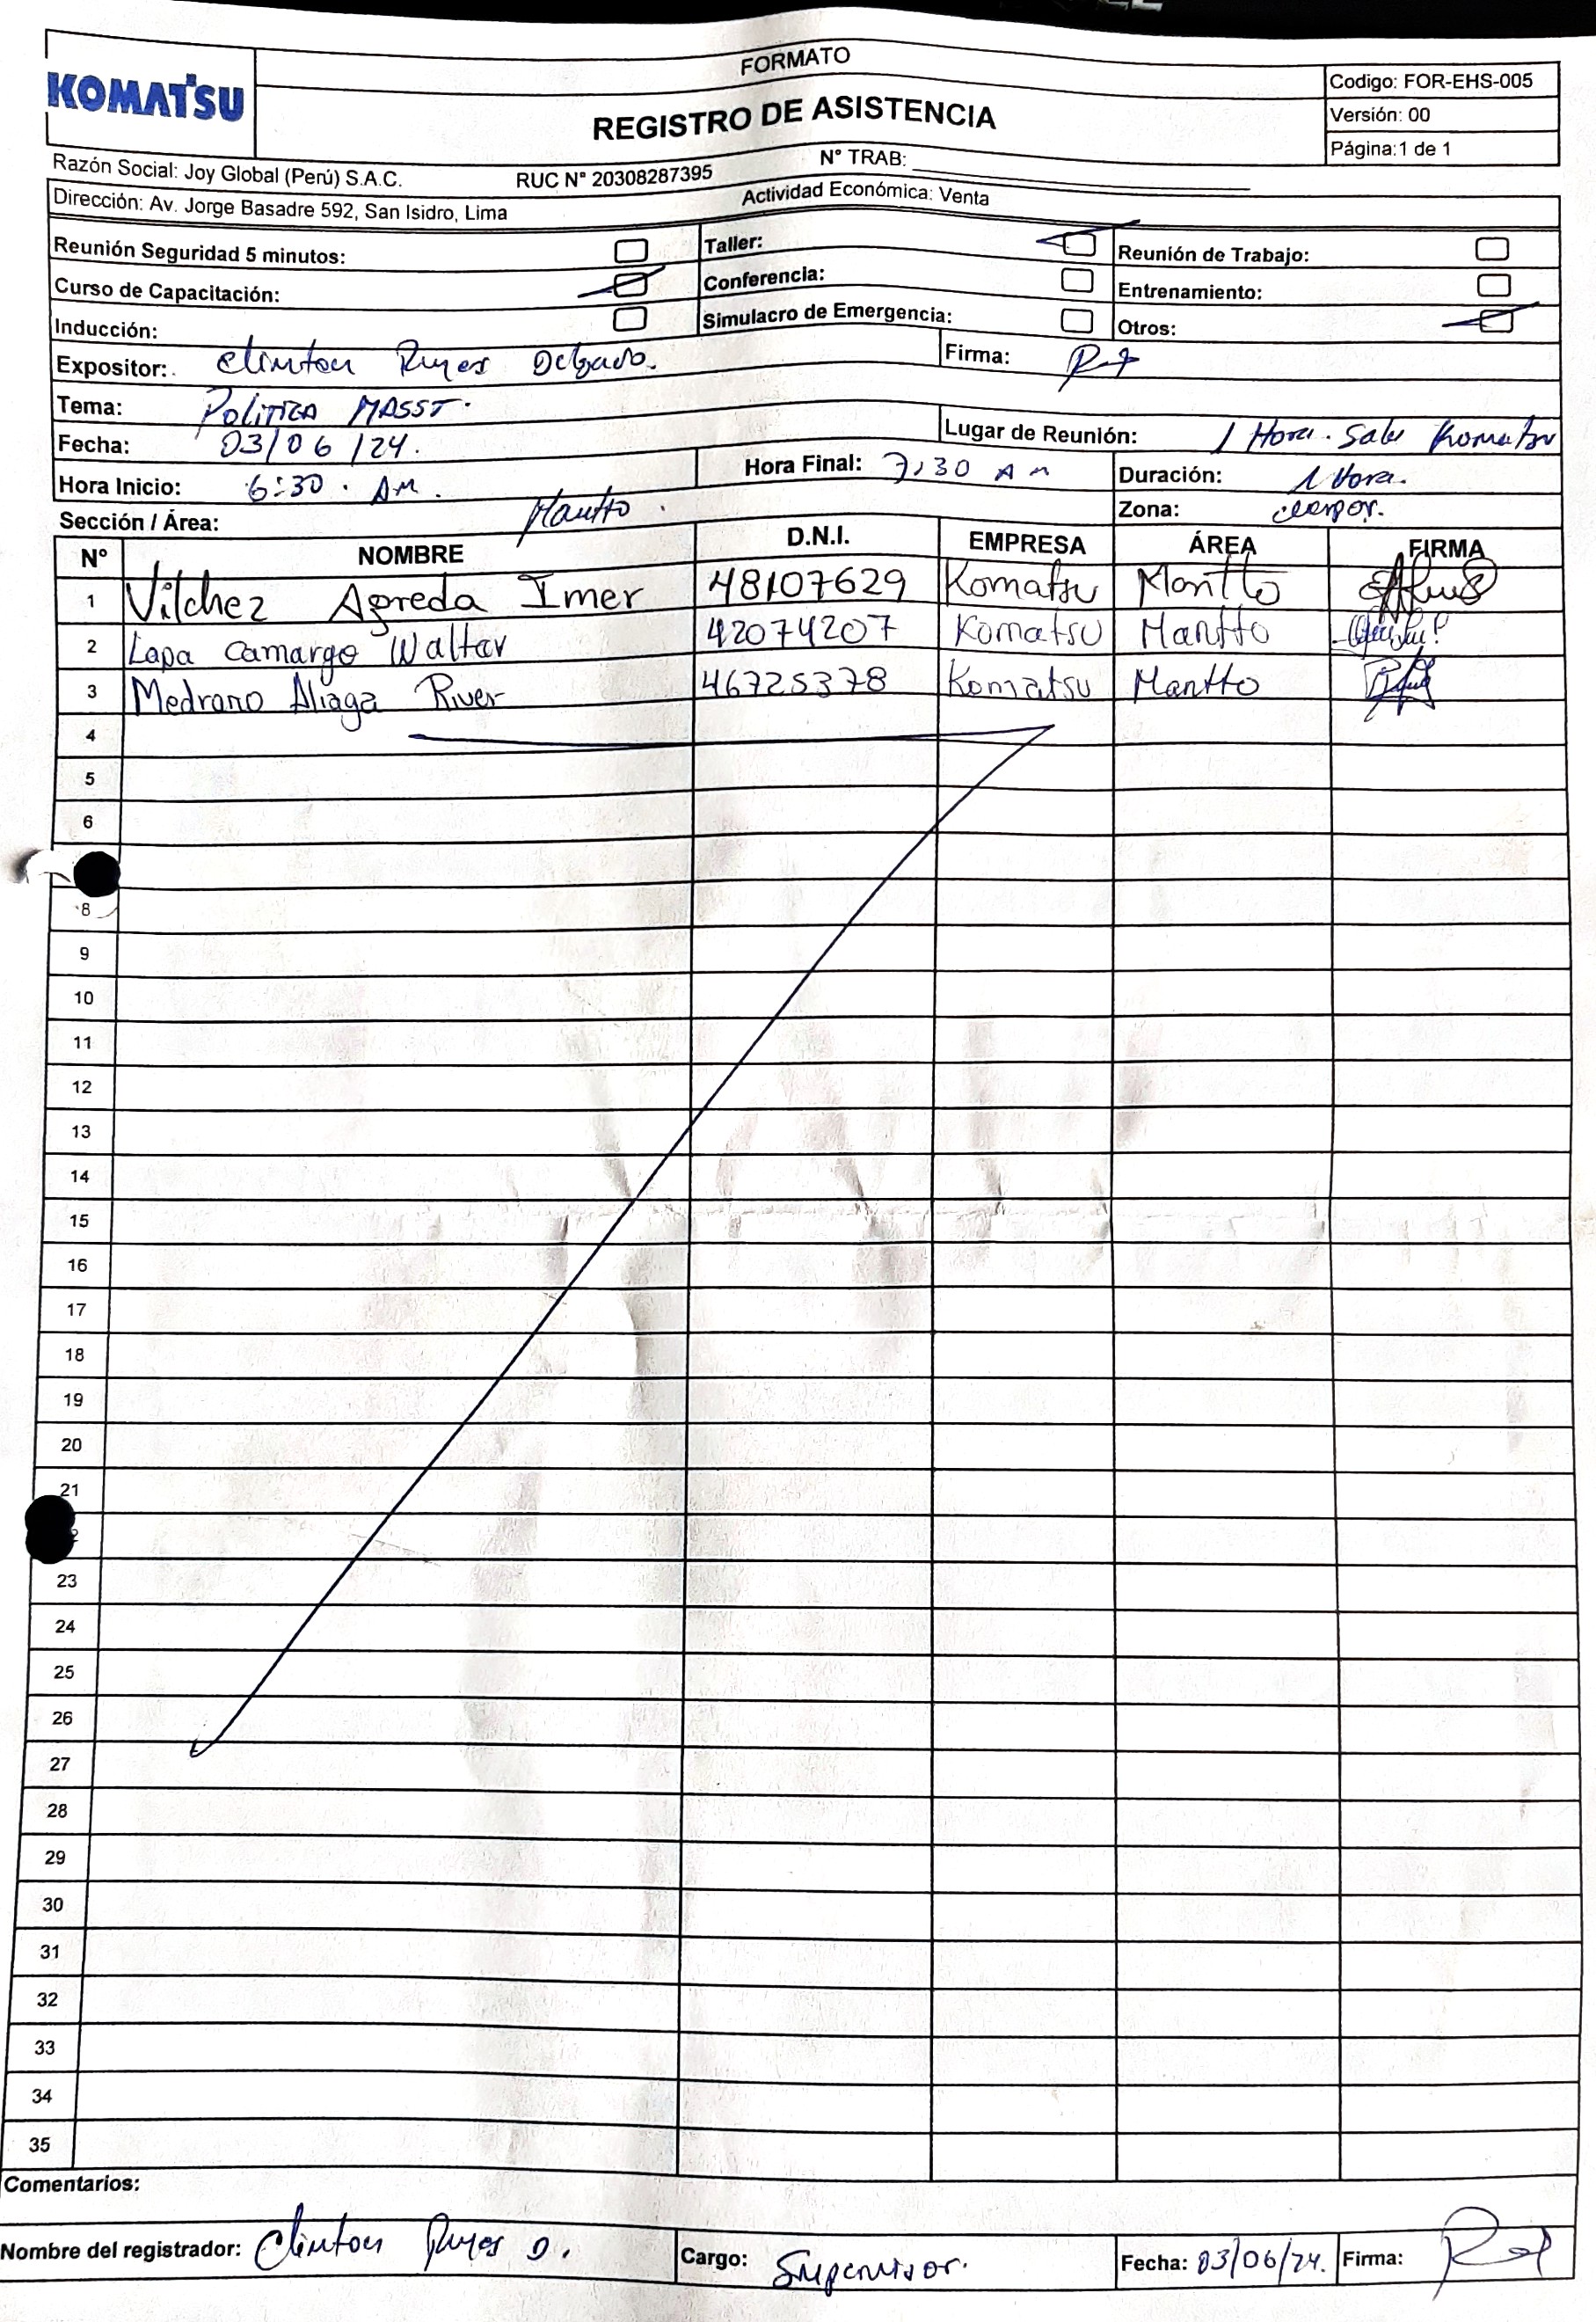 FORMATO
KOMATSU
REGISTRO DE ASISTENCIA
Codigo: FOR-EHS-005
Versión: 00
Página:1 de 1
Razón Social: Joy Global (Perú) S.A.C. RUC N° 20308287395 N° TRAB:
Dirección: Av. Jorge Basadre 592, San Isidro, Lima Actividad Económica: Venta
Reunión Seguridad 5 minutos: Taller: Reunión de Trabajo:
Curso de Capacitación: Conferencia: Entrenamiento:
Inducción: Simulacro de Emergencia: Otros:
Expositor: Clinton Reyes Delgado. Firma:
Tema: POLITICA MASST.
Fecha: 03/06/24. Lugar de Reunión: 1 Hora. Sala Komatsu
Hora Inicio: 6:30. AM. Hora Final: 7:30 AM Duración: 1 Hora.
Sección / Área: Mantto. Zona:
N° NOMBRE D.N.I. EMPRESA ÁREA FIRMA
1 Vilchez Agreda Imer 48107629 Komatsu Mantto
2 Lapa Camargo Walter 42074207 Komatsu Mantto
3 Medrano Aliaga River 46725378 Komatsu Mantto
4
5
6
8
9
10
11
12
13
14
15
16
17
18
19
20
21
23
24
25
26
27
28
29
30
31
32
33
34
35
Comentarios:
Nombre del registrador: Clinton Reyes D. Cargo: Supervisor. Fecha: 03/06/24. Firma: